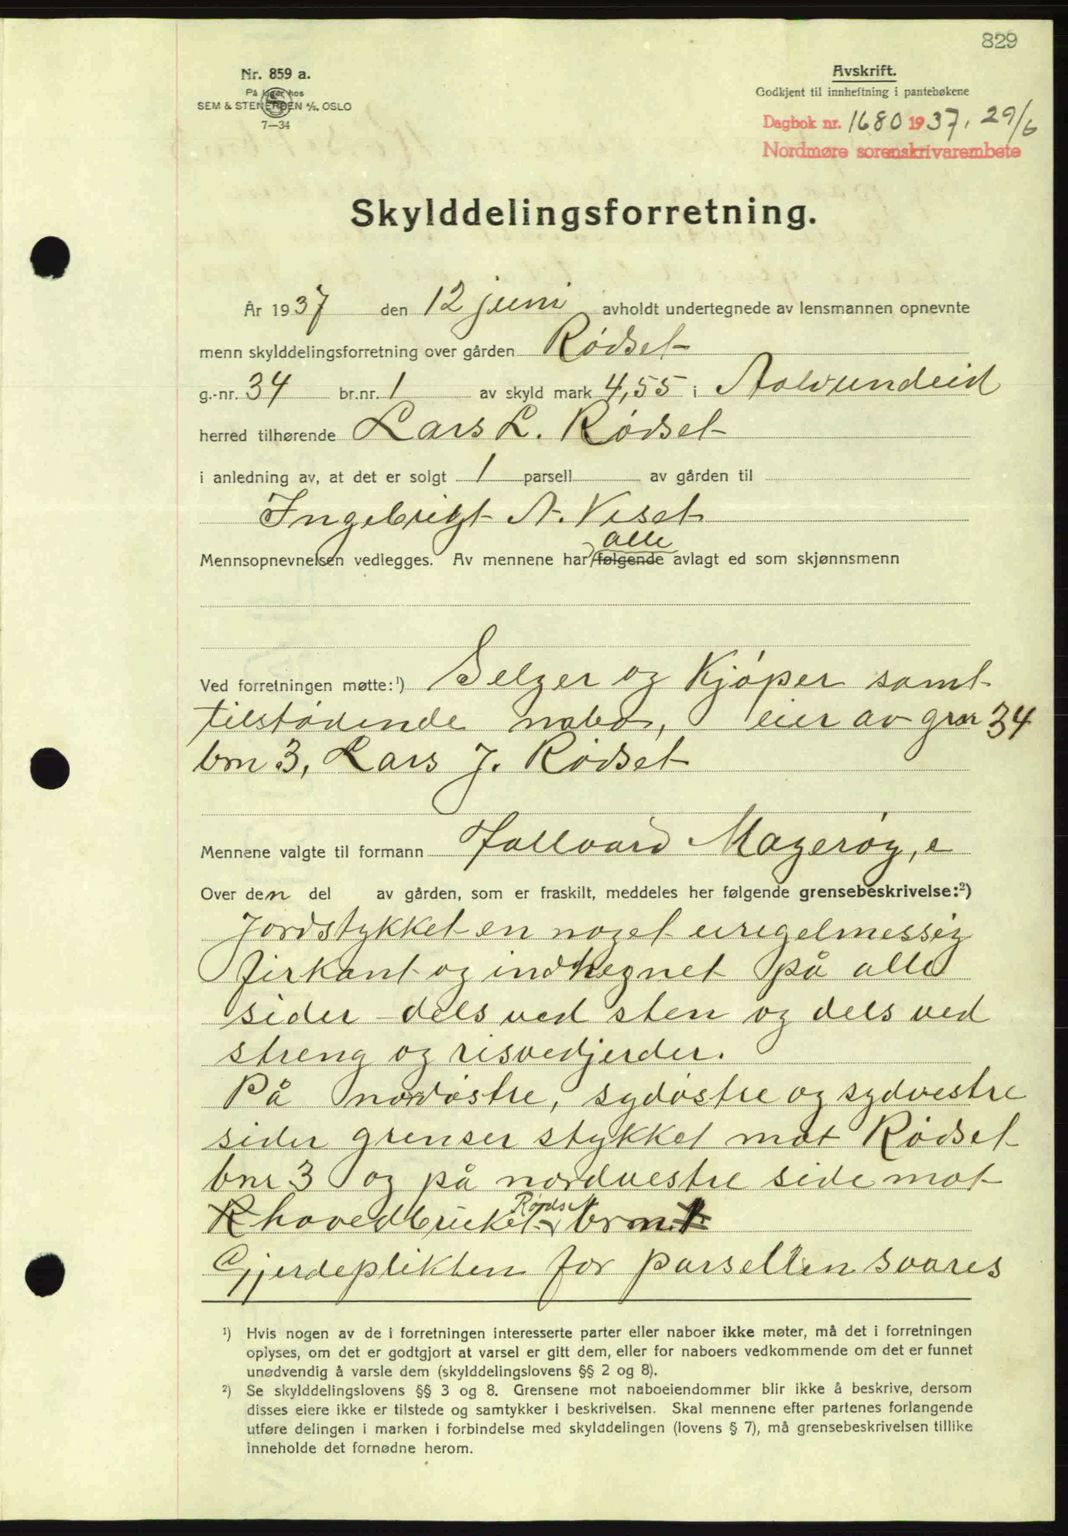 829
Nr. 859 a.
På lager hos
SEM & STENERSEN A/S, OSLO
7—34
Avskrift.
Godkjent til innheftning i pantebøkene
Dagbok nr. 1680 1937. 29/6
Nordmøre sorenskrivarembete
Skylddelingsforretning.
År 1937 den 12 juni avholdt undertegnede av lensmannen opnevnte
menn skylddelingsforretning over gården Rødset
g.-nr. 34 br.nr. 1 av skyld mark 4,55 i Aalvundeid
herred tilhørende Lars L. Rødset
i anledning av, at det er solgt 1 parsell av gården til
Ingebrigt A. Veset
alle
Mennsopnevnelsen vedlegges. Av mennene har følgende avlagt ed som skjønnsmenn
Ved forretningen møtte:¹) Selger og Kjøper samt
tilstødende nabo, eier av gnr 34
bnr 3, Lars J. Rødset
Mennene valgte til formann Hallvard Magerøy,
Over den del av gården, som er fraskilt, meddeles her følgende grensebeskrivelse:²)
Jordstykket en noget uregelmessig
firkant og indhegnet på alle
sider dels ved sten og dels ved
streng og risvedjerder.
På nordøstre, sydøstre og sydvestre
sider grenser stykket mot Rødset
bnr 3 og på nordvestre side mot
Rødset
R hovedbruket brn. 1.
Gjerdeplikten for parsellen svares
¹) Hvis nogen av de i forretningen interesserte parter eller naboer ikke møter, må det i forretningen
oplyses, om det er godtgjort at varsel er gitt dem, eller for naboers vedkommende om det er funnet
unødvendig å varsle dem (skylddelingslovens §§ 2 og 8).
²) Se skylddelingslovens §§ 3 og 8. Grensene mot naboeiendommer blir ikke å beskrive, dersom
disses eiere ikke er tilstede og samtykker i beskrivelsen. Skal mennene efter partenes forlangende
utføre delingen i marken i forbindelse med skylddelingen (lovens § 7), må grensebeskrivelsen tillike
inneholde det fornødne herom.